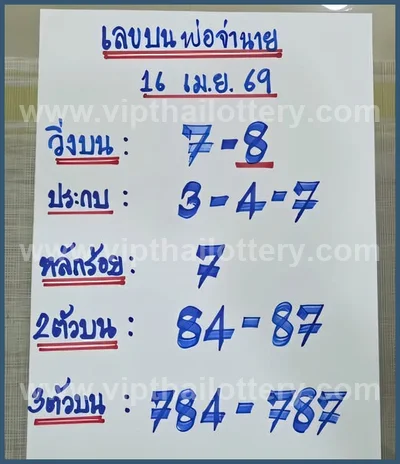 เลขบนพ่อจำนาย
16 เม.ย. 69
www.vipthailottery.com
วิ่งบน : 7-8
ประกบ : 3-4-7
www.vipthailottery.com
หลักร้อย: 7
2ตัวบน : 84-87
www.vipthailottery.com
3ตัวบน : 784-787